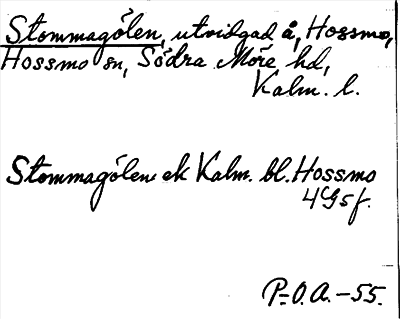 Stommagölen, utvidgad å, Hossmo,
Hossmo sn, Södra Möre hd,
Kalm. l.
Stommagölen ek Kalm. bl. Hossmo
4G5f.
P-O.A. -55.